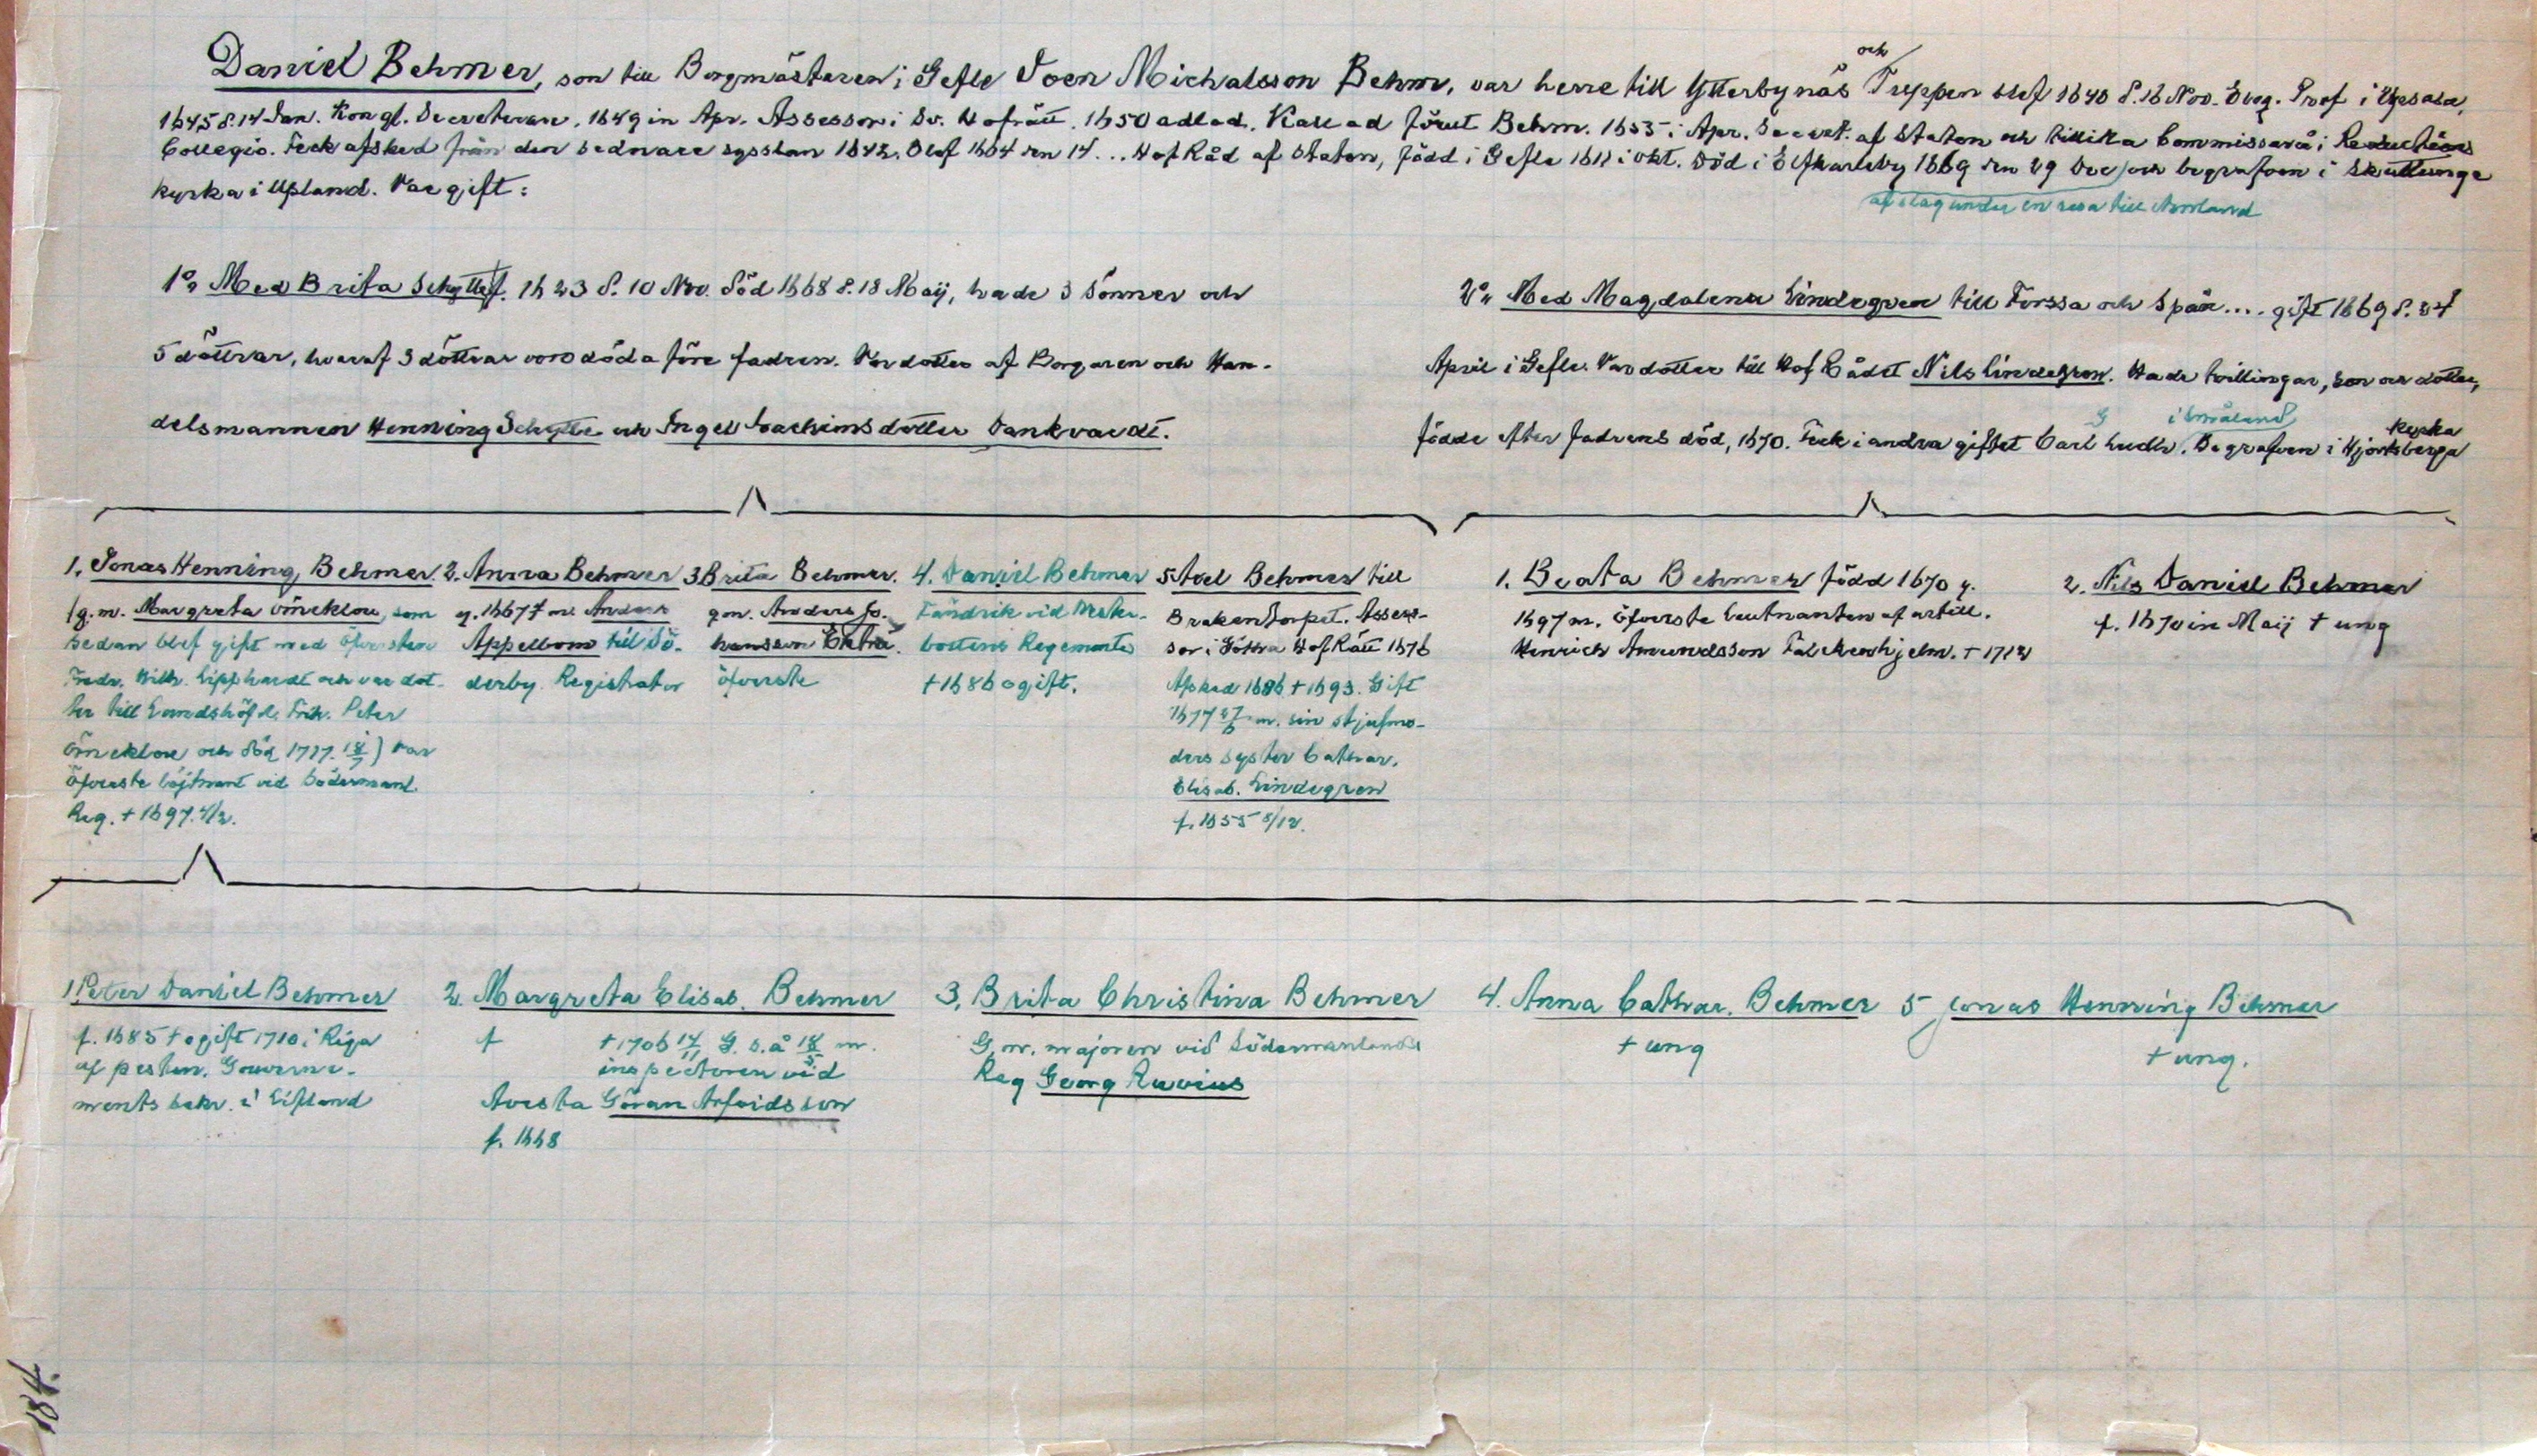 och
Daniel Behmer, son till Borgmästaren i Gefle Joen Michalsson Behm, var herre till Ytterbynäs Treppen blef 1640 d. 16 Nov. Eloq. Prof i Upsala,
1645 d. 14 Jan. Kongl. Secreterare. 1649 in Apr. Assessor i Sv. Hofrätt. 1650 adlad. Kallad förut Behm. 1655 i Apr. Secret. af Staten och tillika Commissarie i Reductions
Collegio. Feck afsked från den sednare sysslan 1642. Blef 1664 den 14... Hof Råd af Staten, född i Gefle 1611 i okt. Död i Elfkarleby 1669 den 29 Dec och begrafven i Skuttunge
kyrka i Upland. Var gift:
af slag under en resa till Norrland
1o, Med Brita Schytte f. 1623 d. 10 Nov. död 1668 d. 18 Maij, hade 3 sönner och
5 döttrar, hvaraf 3 döttrar voro döda före fadren. Var dotter af Borgaren och Han-
delsmannen Henning Schytte och Ingel Joachimsdotter Dankvardt.
2o, Med Magdalena Lindegren till Forssa och Spän.... gift 1669 d. 24
April i Gefle. Var dotter till Hof Rådet Nils Lindegren. Hade tvillingar, son och dotter,
G i Småland
kyrka
födde efter fadrens död, 1670. Feck i andra giftet Carl Ludh. Begrafven i Hjortsberga
1. Jonas Henning Behmer.
(g. m. Margreta Örneklou, som
sedan blef gift med öfversten
Fredr. Wilh. Lipphardt och var dot-
ter till Landshöfd. Frih. Peter
Örneklou och död 1717. 18/7) var
Öfverste löjtnant vid Södermanl.
Reg. + 1697. 4/2.
2. Anna Behmer
g. 1667 m. Anders
Appelbom till Sö-
derby. Registrator
3 Brita Behmer.
g m. Anders Jo-
hansson
öfverste
4. Daniel Behmer
Fändrik vid Wester-
bottens Regemente
+ 1686 ogift.
5 Axel Behmer till
Brakentorpet. Asses-
sor i Götha Hof Rätt 1676
Afsked 1686 + 1693. Gift
1677 27/6 m. sin stjufmo-
ders syster Cathar.
Elisab. Lindegren
f. 1655 8/12.
1. Beata Behmer född 1670 g.
1697 m. öfverste leutnanten af artill.
Henrich Amundsson Falckenhjelm. + 1712
2. Nils Daniel Behmer
f. 1670 in Maij + ung
1 Peter Daniel Behmer
f. 1685 + ogift 1710 i Riga
af pesten. Gouverne-
ments sekr. i Lifland
2. Margreta Elisab. Behmer
f + 1706 14/11 G. s. å 18/5 m.
inspectoren vid
Avesta Göran Arfvidsson
f. 1668
3. Brita Christina Behmer
G. m. majoren vid Södermanlands
Reg Georg Ruuius
4. Anna Cathar. Behmer
+ ung
5 Jonas Henning Behmer
+ ung.
184.